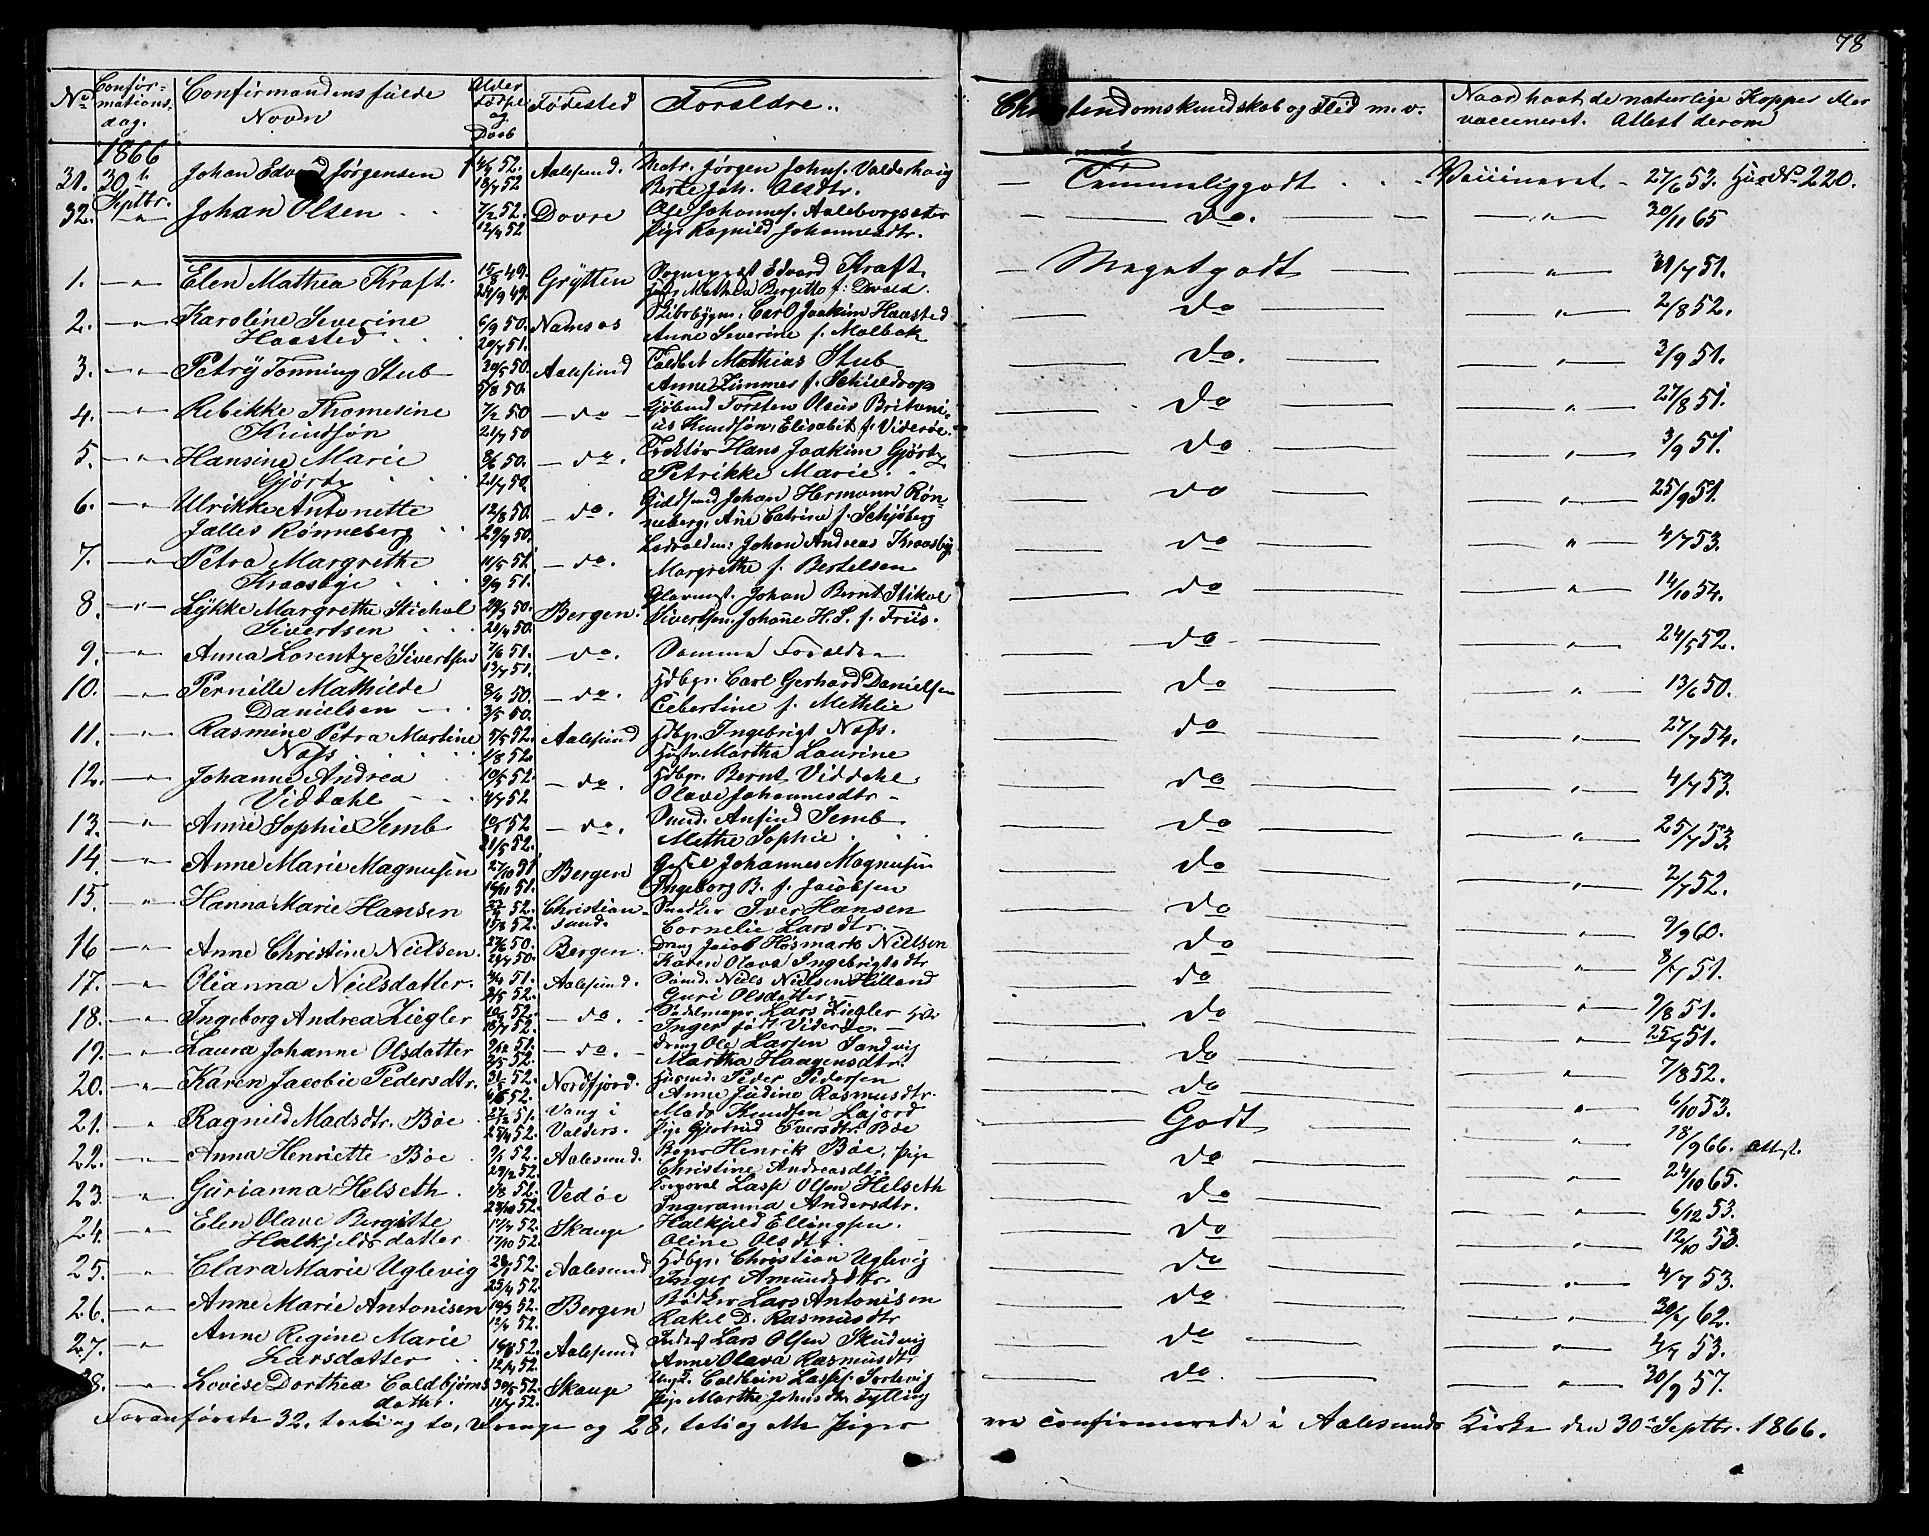 78
No Confirmations dag. Confirmandens fulde Navn Alder Fødsel og Daab Fødested Forældre. Christendomskundskab og Flid m. v. Naar havt de naturlige Kopper eller vaccineret. Attest derom
1866
31. 30te Septbr. Johan Edvard Jørgensen 52. 52 Aalesund. Matr. Jørgen Johns. Valderhoug Berte Joh. Olsdtr. Temmelig godt Vaccineret 27/6 53. 220.
32. " Johan Olsen 7/2 52. 12/4 52 Dovre Ole Johannes. Aaleborgsæter Pige Ragnild Johannesdtr. do. " 30/11 65
1. " Elen Mathea Kraft. 15/8 49. 49. Grytten Sogneprest Edvard Kraft. Mathea Bergitte f. Devold. Meget godt " 51.
2. " Karoline Severine Haasted 6/9 50. 51. Namsos Skibsbygm: Carl Joakim Haasted Anne Severine f. Malbak do " 2/8 52.
3. " Petry Tonning Stub 20/5 50. 5/8 50. Aalesund Toldbt Mathias Stub Anne f. Schieldrop do. " 3/9 51.
4. " Rebikke Thomesine Knudsøn 7/2 50 21/7 50 do Torsten Olsus Knudsøn, Elisabet f. Viderøe. do " 27/8 51.
5. " Hansine Marie Gjørtz 50. 21/7 50. do. Hans Joakim Gjørtz Petrikke Marie. do " 3/9 51.
6. " Ulrikke Antonette Jalles Rønneberg 12/8 50. 29/9 50. do. Johan Hermann Rønneberg, Ane Catrine f. Schjøberg do " 25/9 51.
7. " Petra Margrethe Kraasbye 11/5 51. 9/9 51. do. Johan Andreas Kraasbye Margrethe f. Bertelsen do " 4/7 53.
8. " Lykke Margrethe Stichol Sivertsen 50. 50. Bergen. Johan Bernt Stikol Sivertsen. Johane H. S. f. Friis. do " 14/10 54.
9. " Anna Lorentze Sivertsen 7/6 51. 13/7 51. do. Samme Forældre do " 24/5 52.
10. " Pernille Mathilde Danielsen 8/4 50. 3/5 50. do. Hdbgr. Carl Gerhard Danielsen Cebertine f. Methlie do " 13/6 50.
11. " Rasmine Petra Martine Næss 52. 1/8 52. Aalesund Hdbgr. Ingebrigt Næss. Hustr. Martha Laurine do " 27/7 54.
12. " Johanne Andrea Viddahl 52. 52 do. Hdbgr. Bernt Viddahl Olave Johannesdtr do " 4/7 53.
13. " Anne Sophie Semb 52 31/5 52. do. Smed. Anfind Semb Methe Sophie do " 25/7 53.
14. " Anne Marie Magnusen 27/10 51. 16/11 51. Bergen Johannes Magnusen Ingeborg B. f. Jacobsen do " 2/7 52.
15. " Hanna Marie Hansen 52. 15/8 52. Christiansund. Snedker Iver Hansen Cornelie Larsdtr. do " 9/9 60.
16 " Anne Christine Neilsen. 50. 21/7 50. Bergen Jacob Høsmark Nielsen Karen Olava Ingebrigtsdtr do " 8/7 51.
17. " Olianna Neilsdatter. 51. 52. Aalesund. Sømd. Niels Nielsen Hilland Guri Olsdatter. do " 9/8 51.
18. " Ingeborg Andrea Ziegler 52. 18/7 52. do. Sadelmager Lars Ziegler Inger født Viderøe do " 25/7 51.
19. " Laura Johanne Olsdatter 51. 52. do. Ole Larsen Sandvig Martha Haagensdtr. do " 7/8 52.
20. " Karen Jacobie Pedersdtr. 52. 52. Nordfjord. Husmd. Peder Pedersen Anne Jadine Rasmusdtr. do " 6/10 53.
21. " Ragnild Madsdtr. Bøe 51. 52. Vang i Valders. Mads Knudsen Lajord Pige Gjertrud Iversdtr. Bøe Godt " 18/9 66. Attst.
22. " Anna Henriette Bøe 52. 29/12 52. Aalesund. Henrik Bøe, Pige Christine Andreasdtr. do " 24/10 65.
23. " Gurianna Helseth 1/8 52. 52. Vedøe Corporal Lasse Olsen Helseth Ingeranna Andersdtr. do " 6/12 53.
24. " Elen Olave Bergitte Halkjelds datter 52. 17/10 52. Skauge Halkjeld Ellingsen. Oline Olsdt. do " 12/10 53.
25. " Clara Marie Uglevig 52. 25/4 52. Aalesund Hdbgr. Christian Uglevig Inger Amundsdtr. do " 4/7 53.
26. " Anne Marie Antonisen 52. 12/4 52. Bergen Bødker Lars Antonisen Rakel D. Rasmusdtr do " 62.
27. " Anne Regine Marie Larsdatter 52. 12/4 52. Aalesund Lars Olsen Skudvig Anne Olava Rasmusdtr do " 53.
28. " Lovise Dorthea Coldbjørns datter. 52. 52. Skauge Ungk. Coldbein Lasses. Sortevig Pige Martha Johnsdtr. Fylling do. " 30/9 57.
Foranførete 32, treti og to, Drenge og 28, toti og otte Piger ere confirmerede i Aalesunds Kirke den 30te Septbr. 1866.